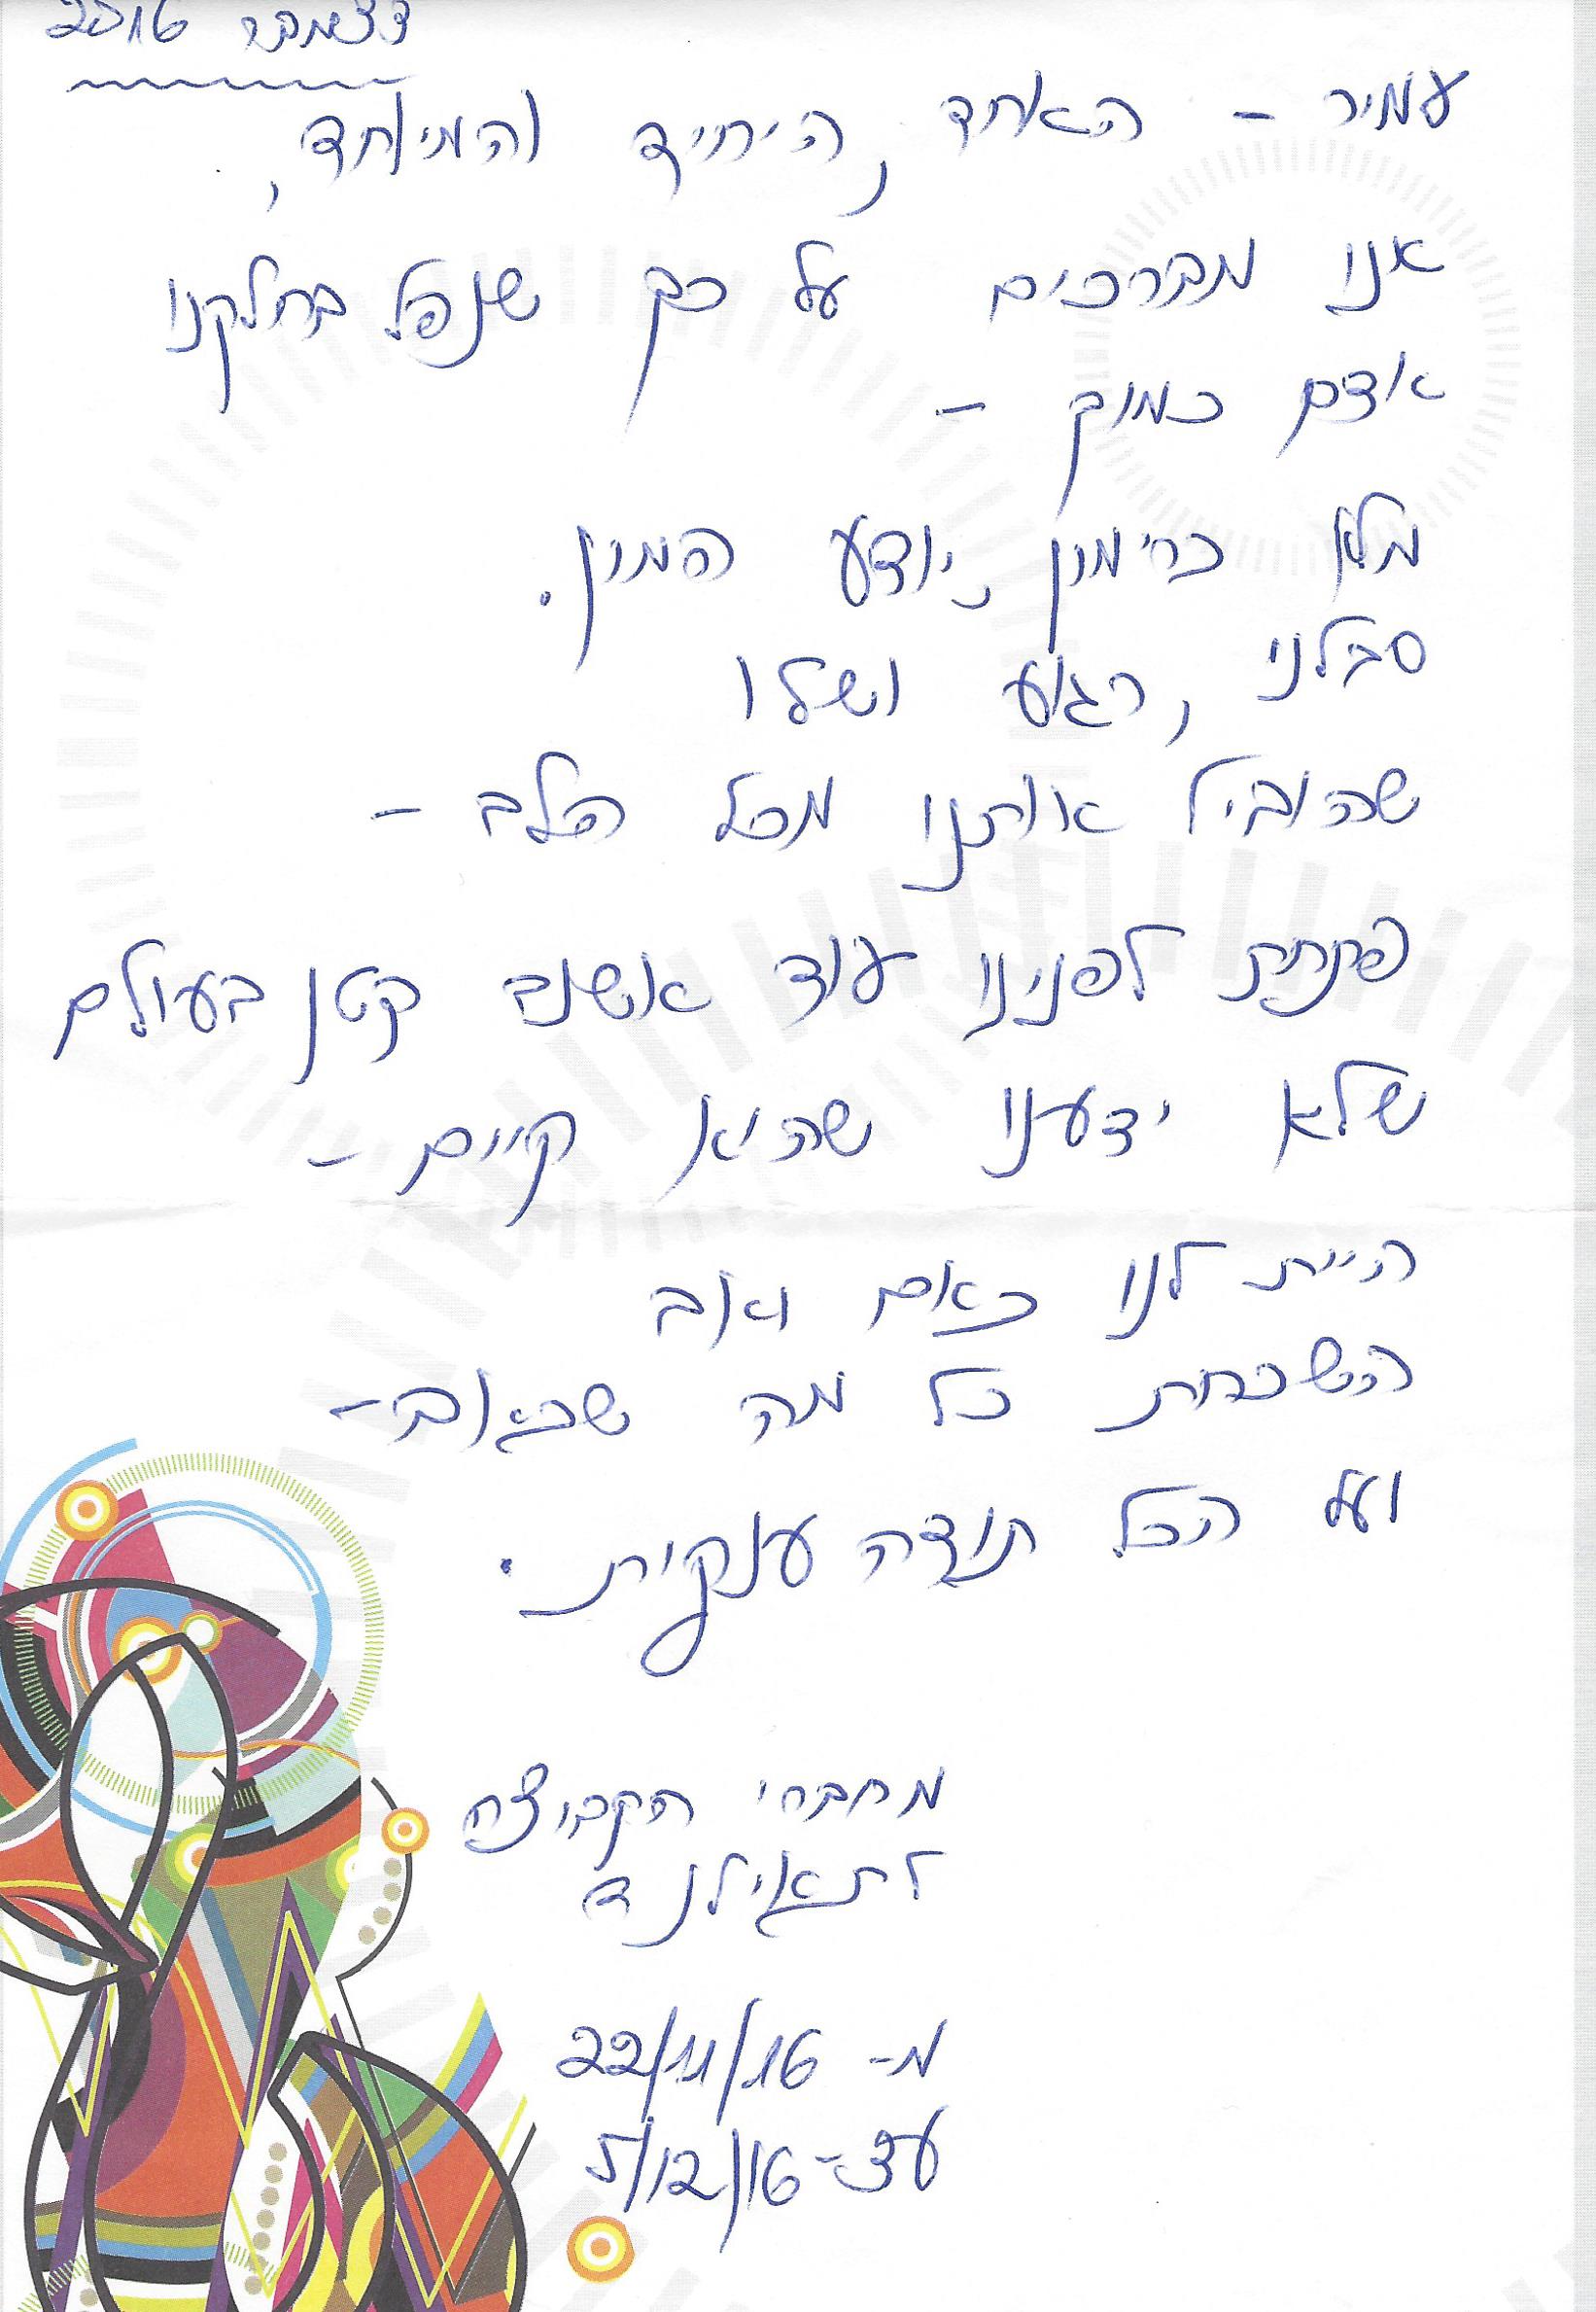 דצמבר 2016
עמיר - האחד, היחיד והמיוחד,
אנו מברכים על כך שנפל בחלקנו
אדם כמוך -
מלא כרימון, יודע המון.
סבלני, רגוע ושלו
שהוביל אותנו מכל הלב -
פתחת לפנינו עוד אשנב קטן בעולם
שלא ידענו שהיא קיים -
היית לנו כאם ואב
השכחת כל מה שכאב -
ועל הכל תודה ענקית.
מחברי הקבוצה
לתאילנד
מ- 22/11/16
עד - 5/12/16